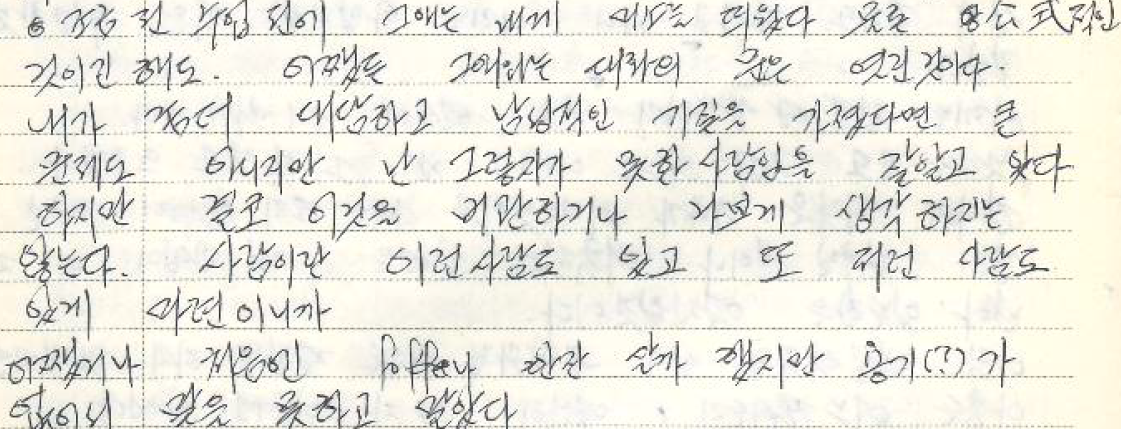 조금 전 수업 전에 그애는 내게 미소를 띄웠다 물론 公式적인
것이긴 해도. 어쨌든 그애와는 대화의 문은 열린 것이다.
내가 좀더 대담하고 남성적인 기질을 가졌다면 큰
문제도 아니지만 난 그렇지가 못한 사람임을 잘알고 있다
하지만 결코 이것을 비관하거나 나쁘게 생각 하지는
않는다. 사람이란 이런 사람도 있고 또 저런 사람도
있게 마련이니까
어쨌거나 처음인 한잔 할까 했지만 용기(?)가
없어서 말을 못하고 말았다